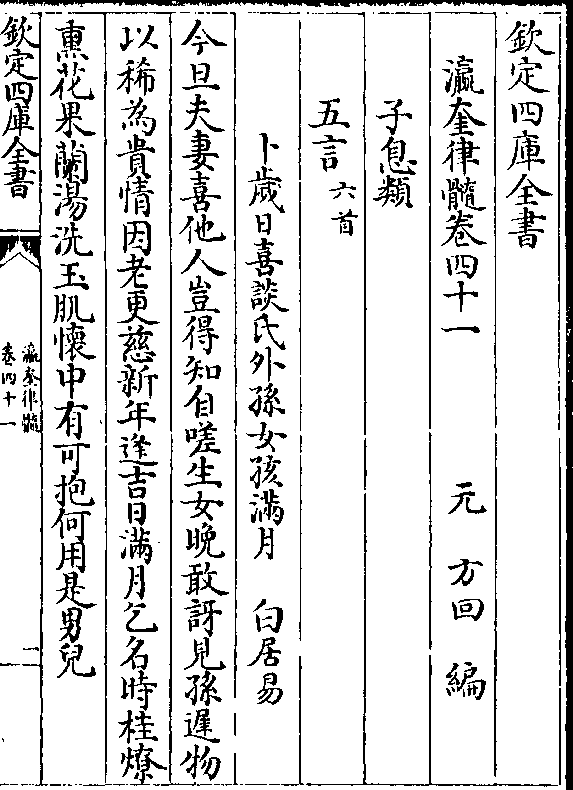 欽定四庫全書
瀛奎律髓卷四十一　元　方回　編
子息類
五言六首
卜歲日喜談氏外孫女孩滿月　白居易
今旦夫妻喜他人豈得知自嗟生女晚敢訝見孫遲物
以稀為貴情因老更慈新年逢吉日滿月乞名時桂燎
熏花果蘭湯洗玉肌懷中有可抱何用是男兒
欽定四庫全書
瀛奎律髓
卷四十一
一